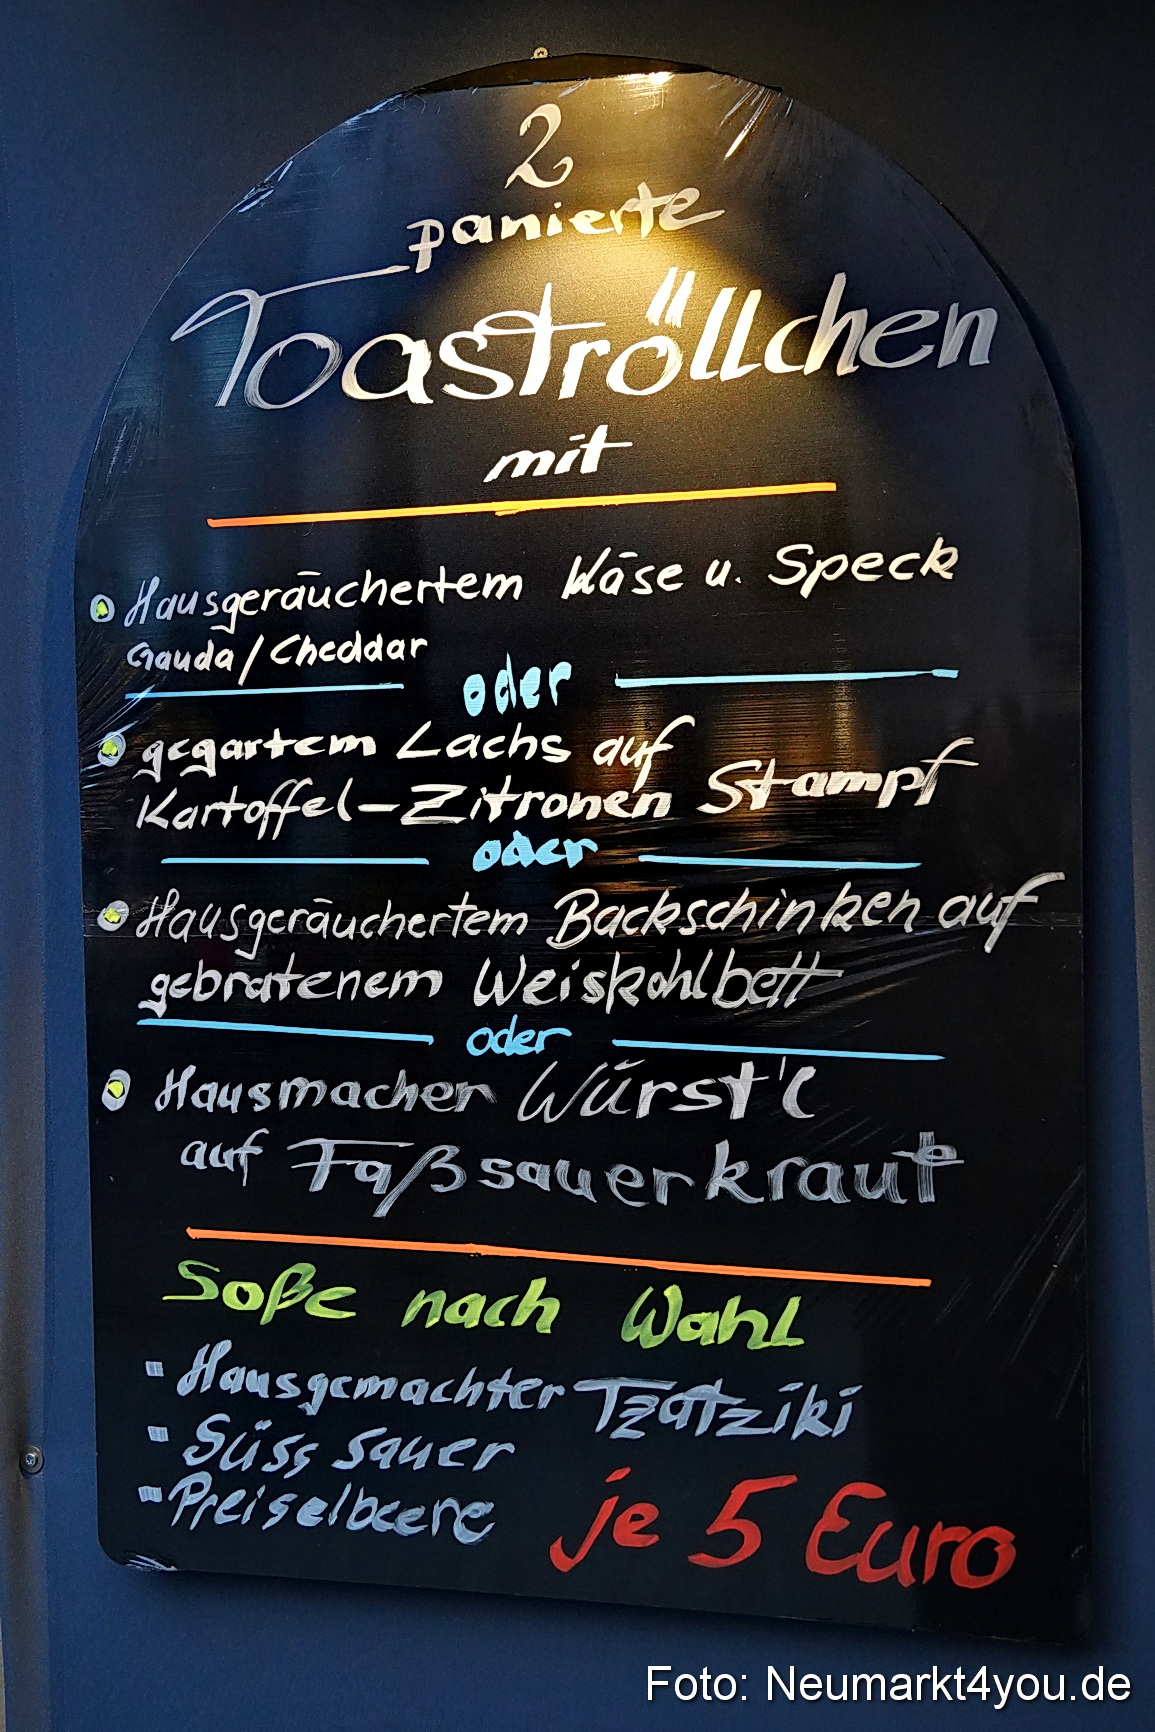 2
panierte
Toaströllchen
mit
Hausgeräuchertem Käse u. Speck
Gauda/Cheddar
oder
gegartem Lachs auf
Kartoffel-Zitronen Stampf
oder
Hausgeräuchertem Backschinken auf
gebratenem Weiskohlbett
oder
Hausmacher Würst'l
auf Faßsauerkraut
Soße nach Wahl
Hausgemachter Tzatziki
Süss sauer
Preiselbeere
je 5 Euro
Foto: Neumarkt4you.de